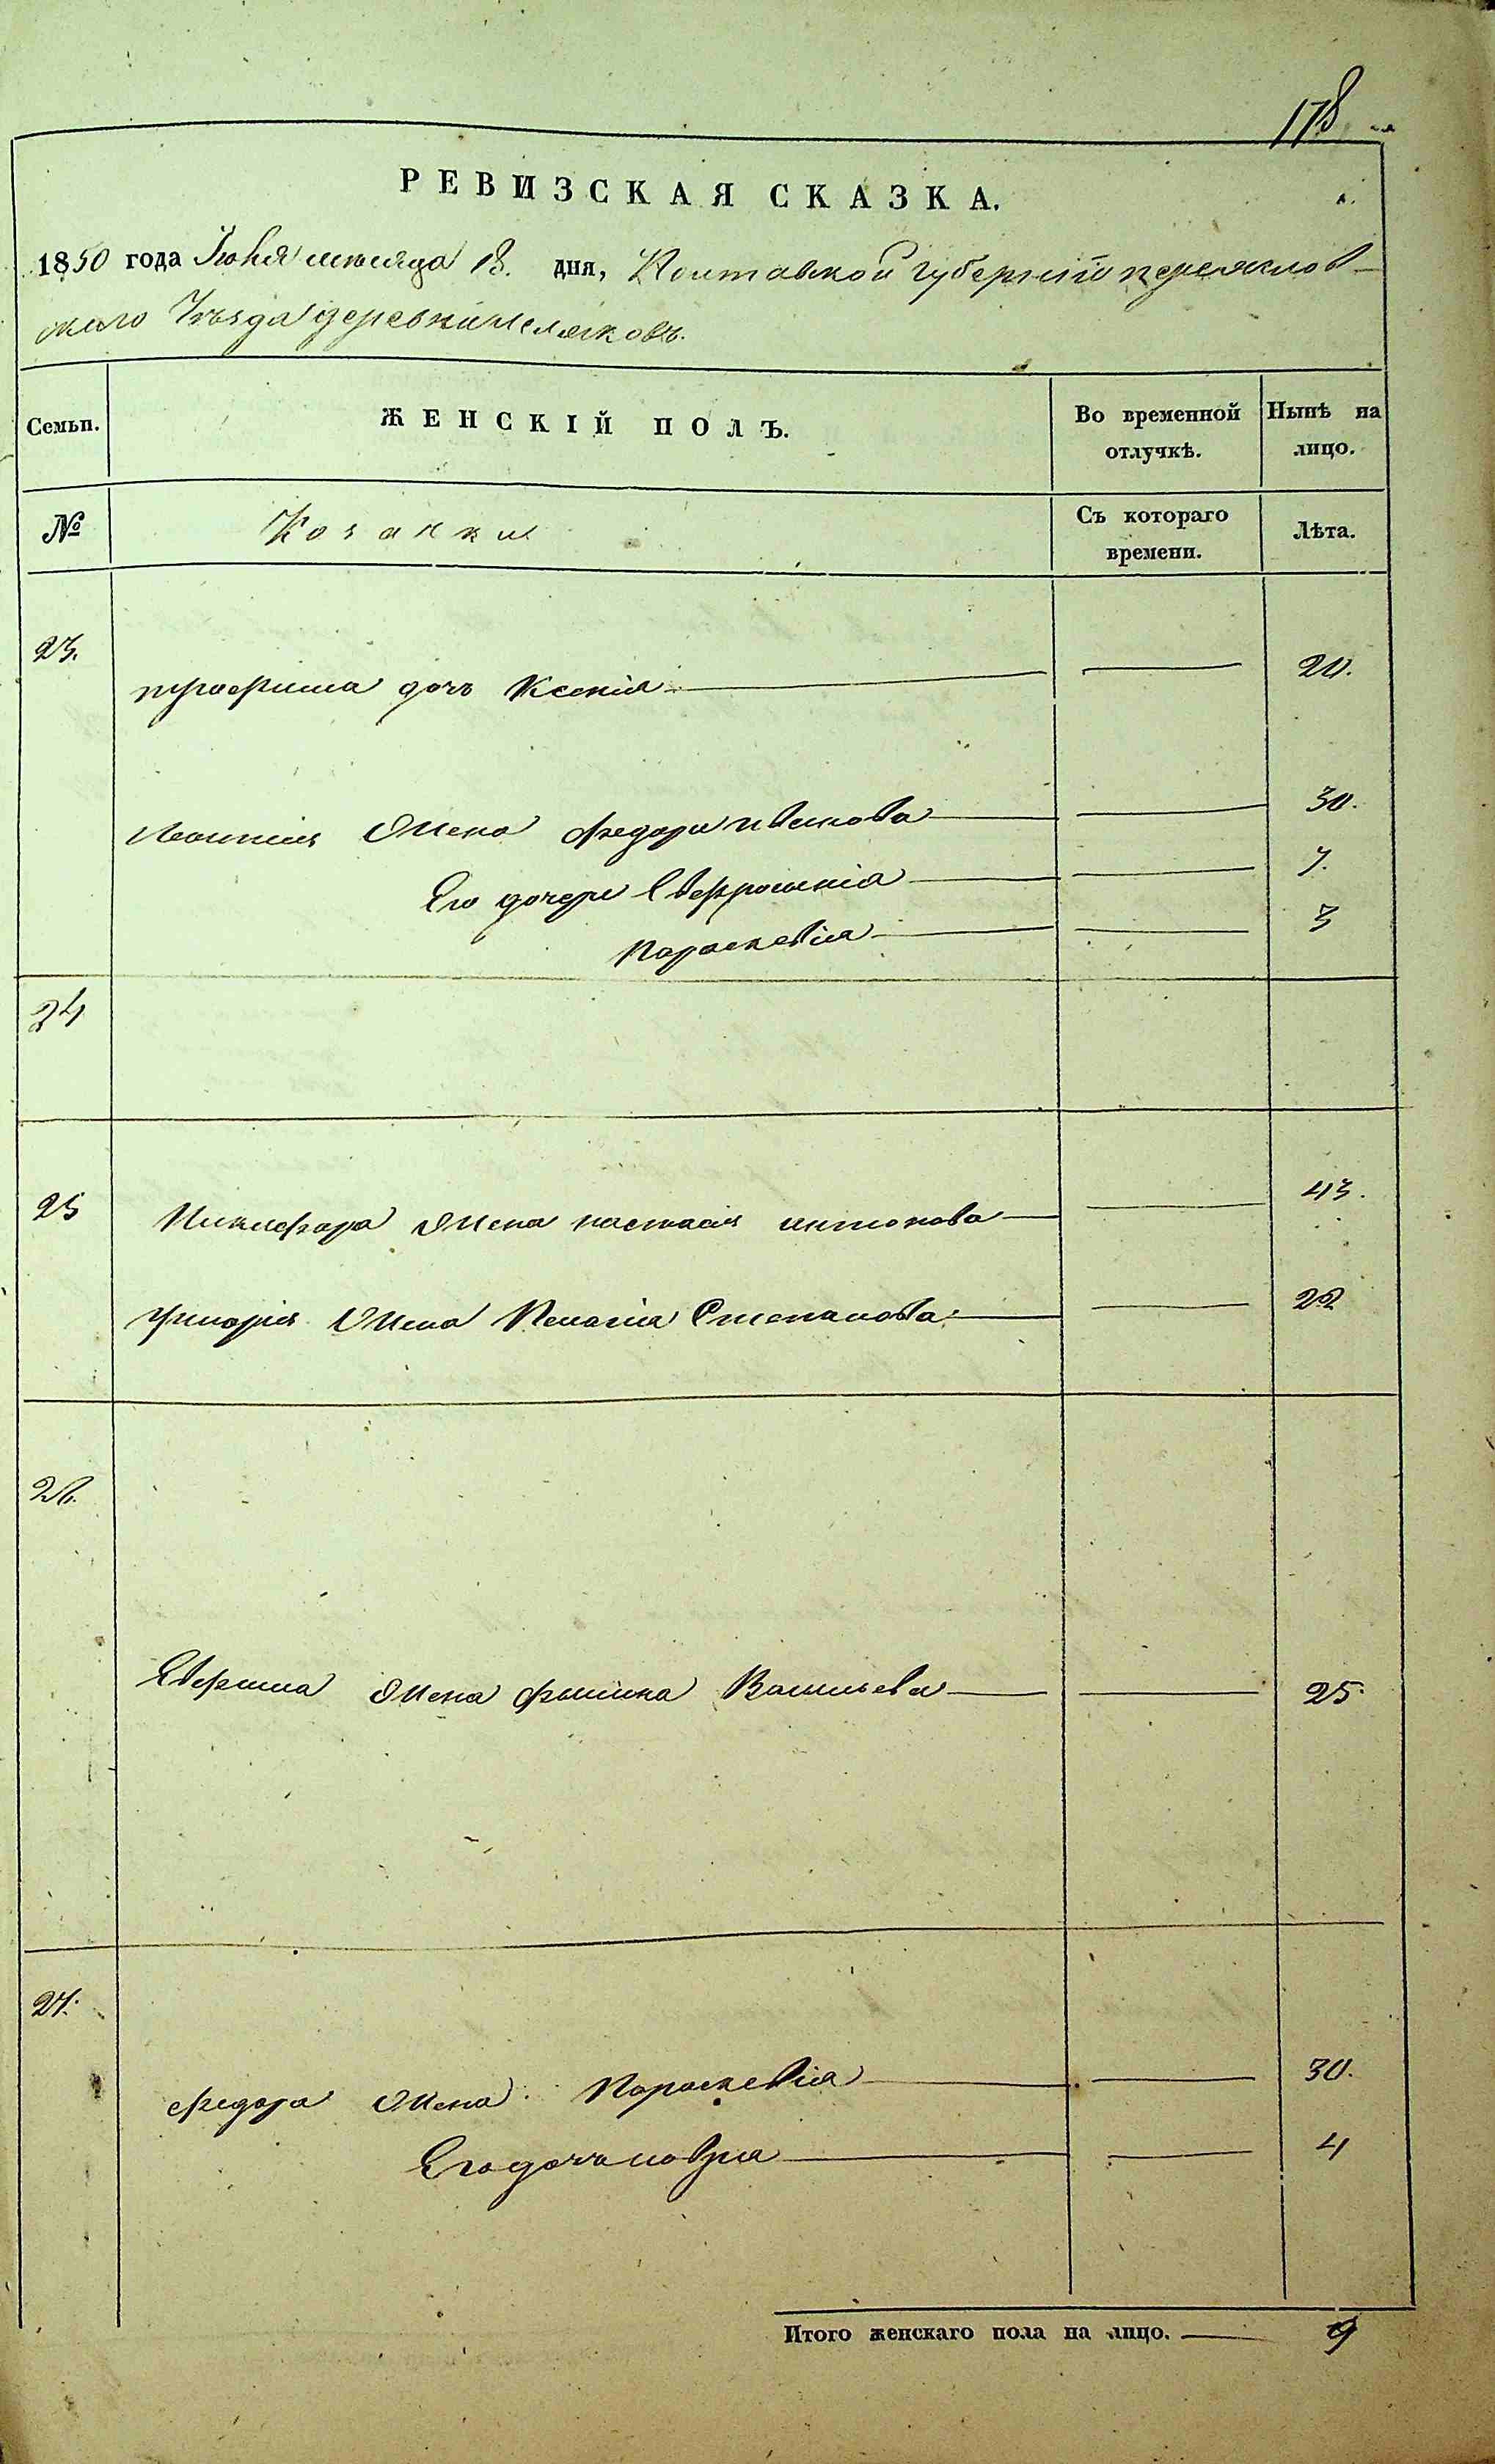 178
РЕВИЗСКАЯ СКАЗКА.
1850 года Іюня месяца 18. дня, Полтавской Губерніи переяслов-
ского Уезда деревни
Семьи.
ЖЕНСКІЙ ПОЛЪ.
Во временной
отлучкѣ.
Нынѣ на
лицо.
№
Козачки
Съ котораго
времени.
Лѣта.
23.
трофима дочь Ксенія 20.
Леонтія Жена Федора Иванова 30.
Его дочери Евфросинія 7.
Параскевія 3
24
25
Никифора Жена настасія антонова 43.
Григорія Жена Пелагія Степанова 22
26.
Ефима Жена Васильева 25
27.
Федора Жена Параскевія 30.
Его дочь 4
Итого женскаго пола на лицо. 9